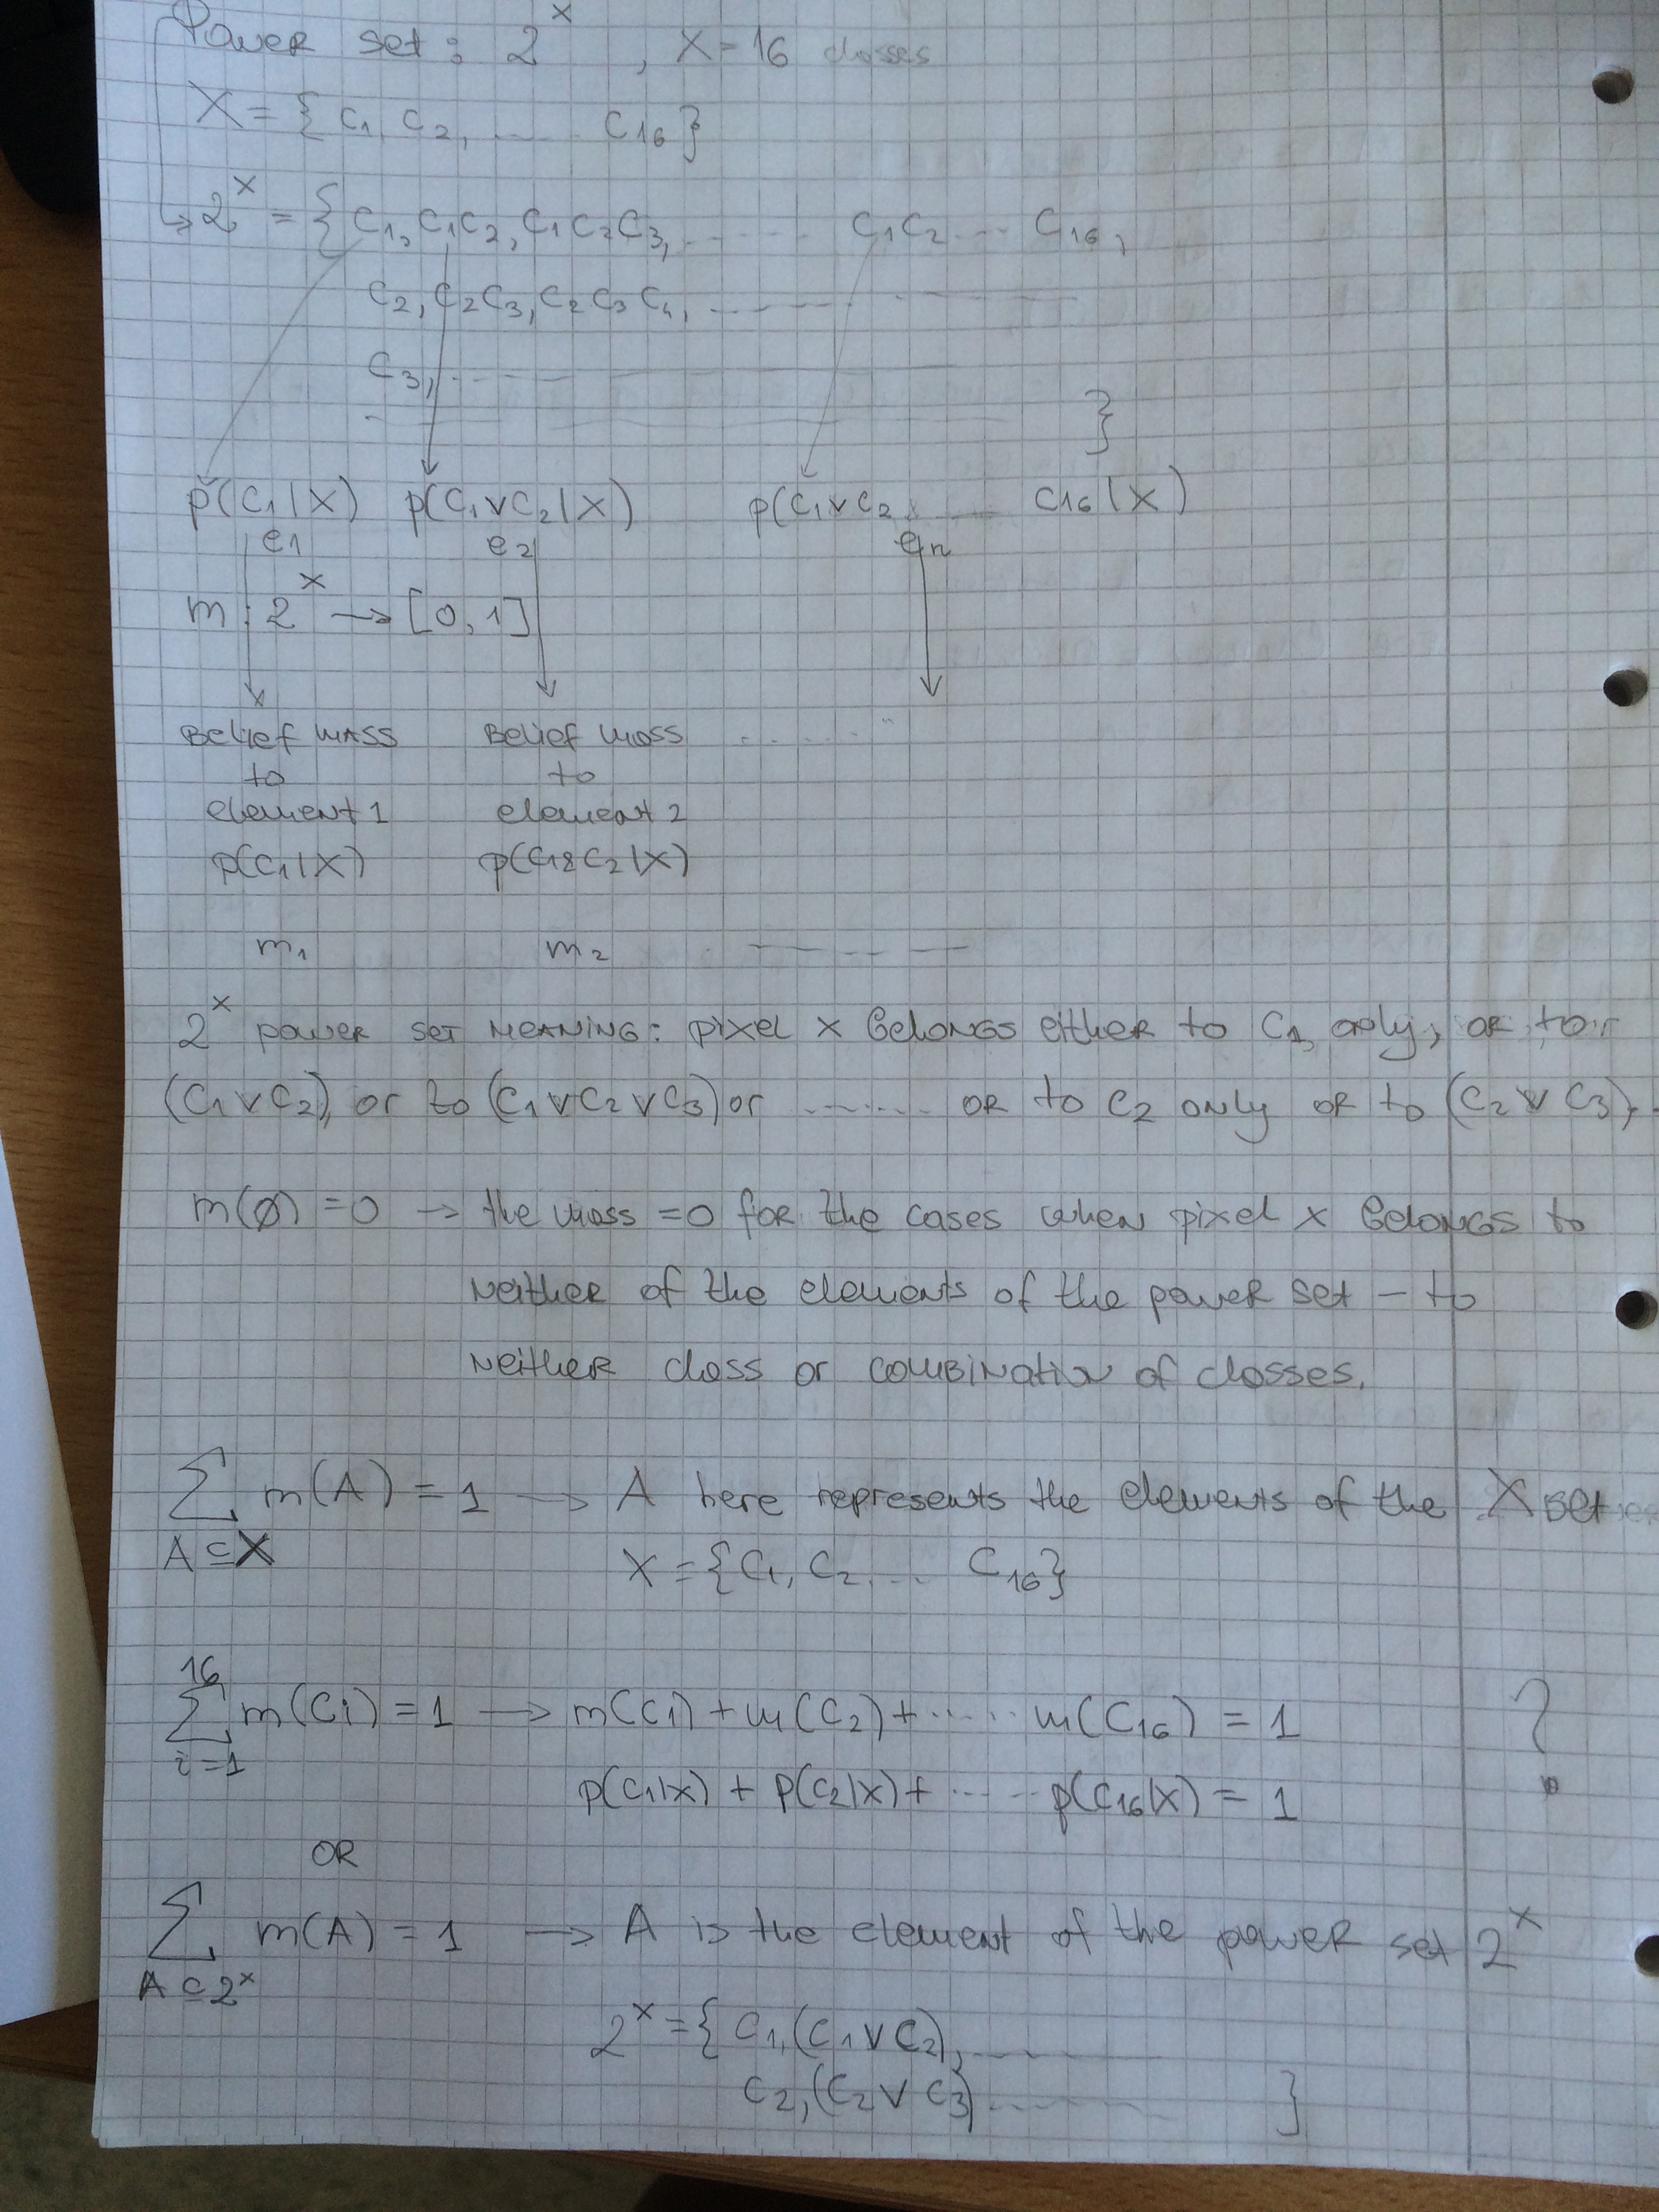 Power set: 2^x , X = 16 classes
X = { C1, C2, ...... C16 }
→ 2^x = { C1, C1C2, C1C2C3, ........ C1C2 .... C16,
C2, C2C3, C2C3C4, ..........
C3, ..........
}
p(C1|X) p(C1∨C2|X) p(C1∨C2 ...... C16|X)
e1 e2 en
m : 2^x → [0,1]
Belief mass Belief mass ......
to to
element 1 element 2
p(C1|X) p(C1&C2|X)
m1 m2 ..........
2^x power set MEANING: pixel x Belongs either to C1 only, or to
(C1∨C2), or to (C1∨C2∨C3) or ........ or to C2 only or to (C2∨C3),
m(∅) = 0 → the mass = 0 for the cases when pixel x Belongs to
neither of the elements of the power set - to
neither class or combination of classes.
∑ m(A) = 1 → A here represents the elements of the X set
A⊆X X = {C1, C2.... C16}
16
∑ m(Ci) = 1 → m(C1) + m(C2) + ...... m(C16) = 1 ?
i=1
p(C1|x) + p(C2|x) + ...... p(C16|x) = 1
OR
∑ m(A) = 1 → A is the element of the power set 2^x
A⊆2^x
2^x = { C1, (C1∨C2), ........
C2, (C2∨C3) ........ }